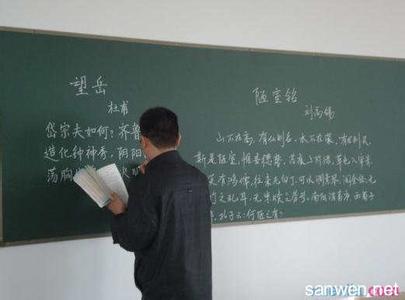 望岳
杜甫
岱宗夫如何？齐鲁
造化钟神秀，阴阳
荡胸
陋室铭
刘禹锡
山不在高，有仙则名。水不在深，有龙则灵。
斯是陋室，惟吾德馨。苔痕上阶绿，草色入帘青。
笑有鸿儒，往来无白丁。可以调素琴，阅金经。无
之乱耳，无案牍之劳形。南阳诸葛庐，西蜀子
孔子云：何陋之有？
sanwen.net